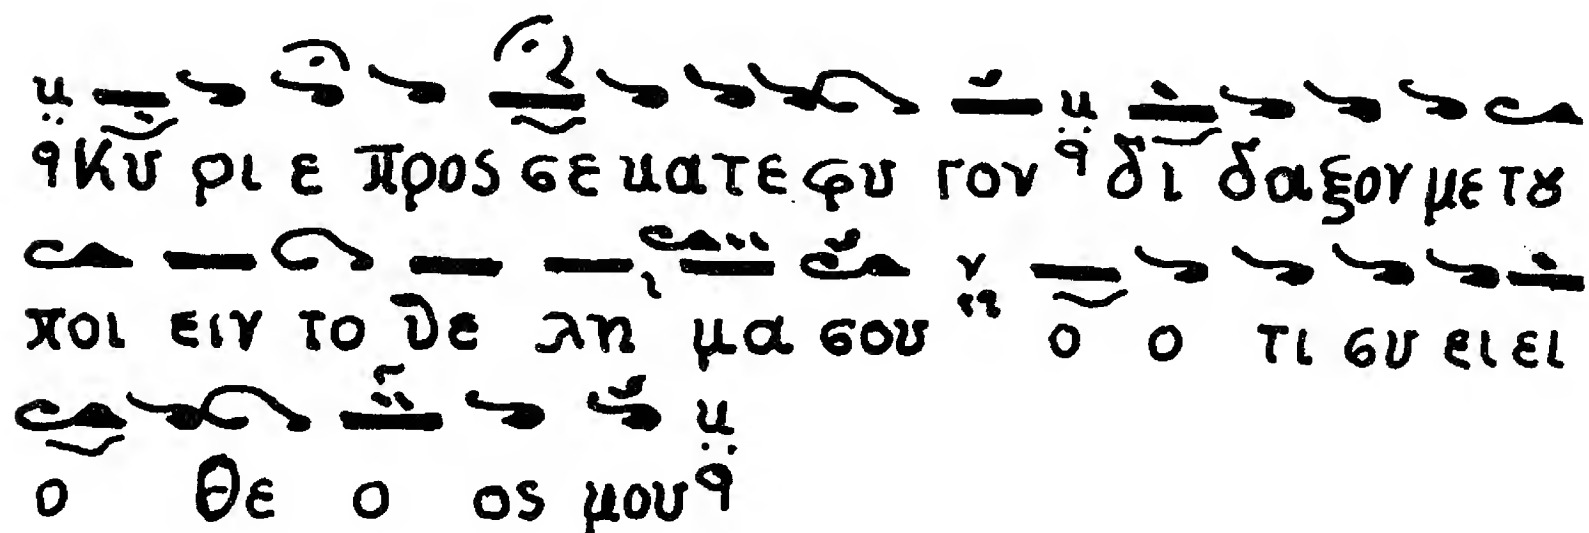 Κυ ρι ε προς σε κα τε φυ γον δι δα ξον με του
ποι ειν το θε λη μα σου ο ο τι συ ει ει
ο θε ο ος μου